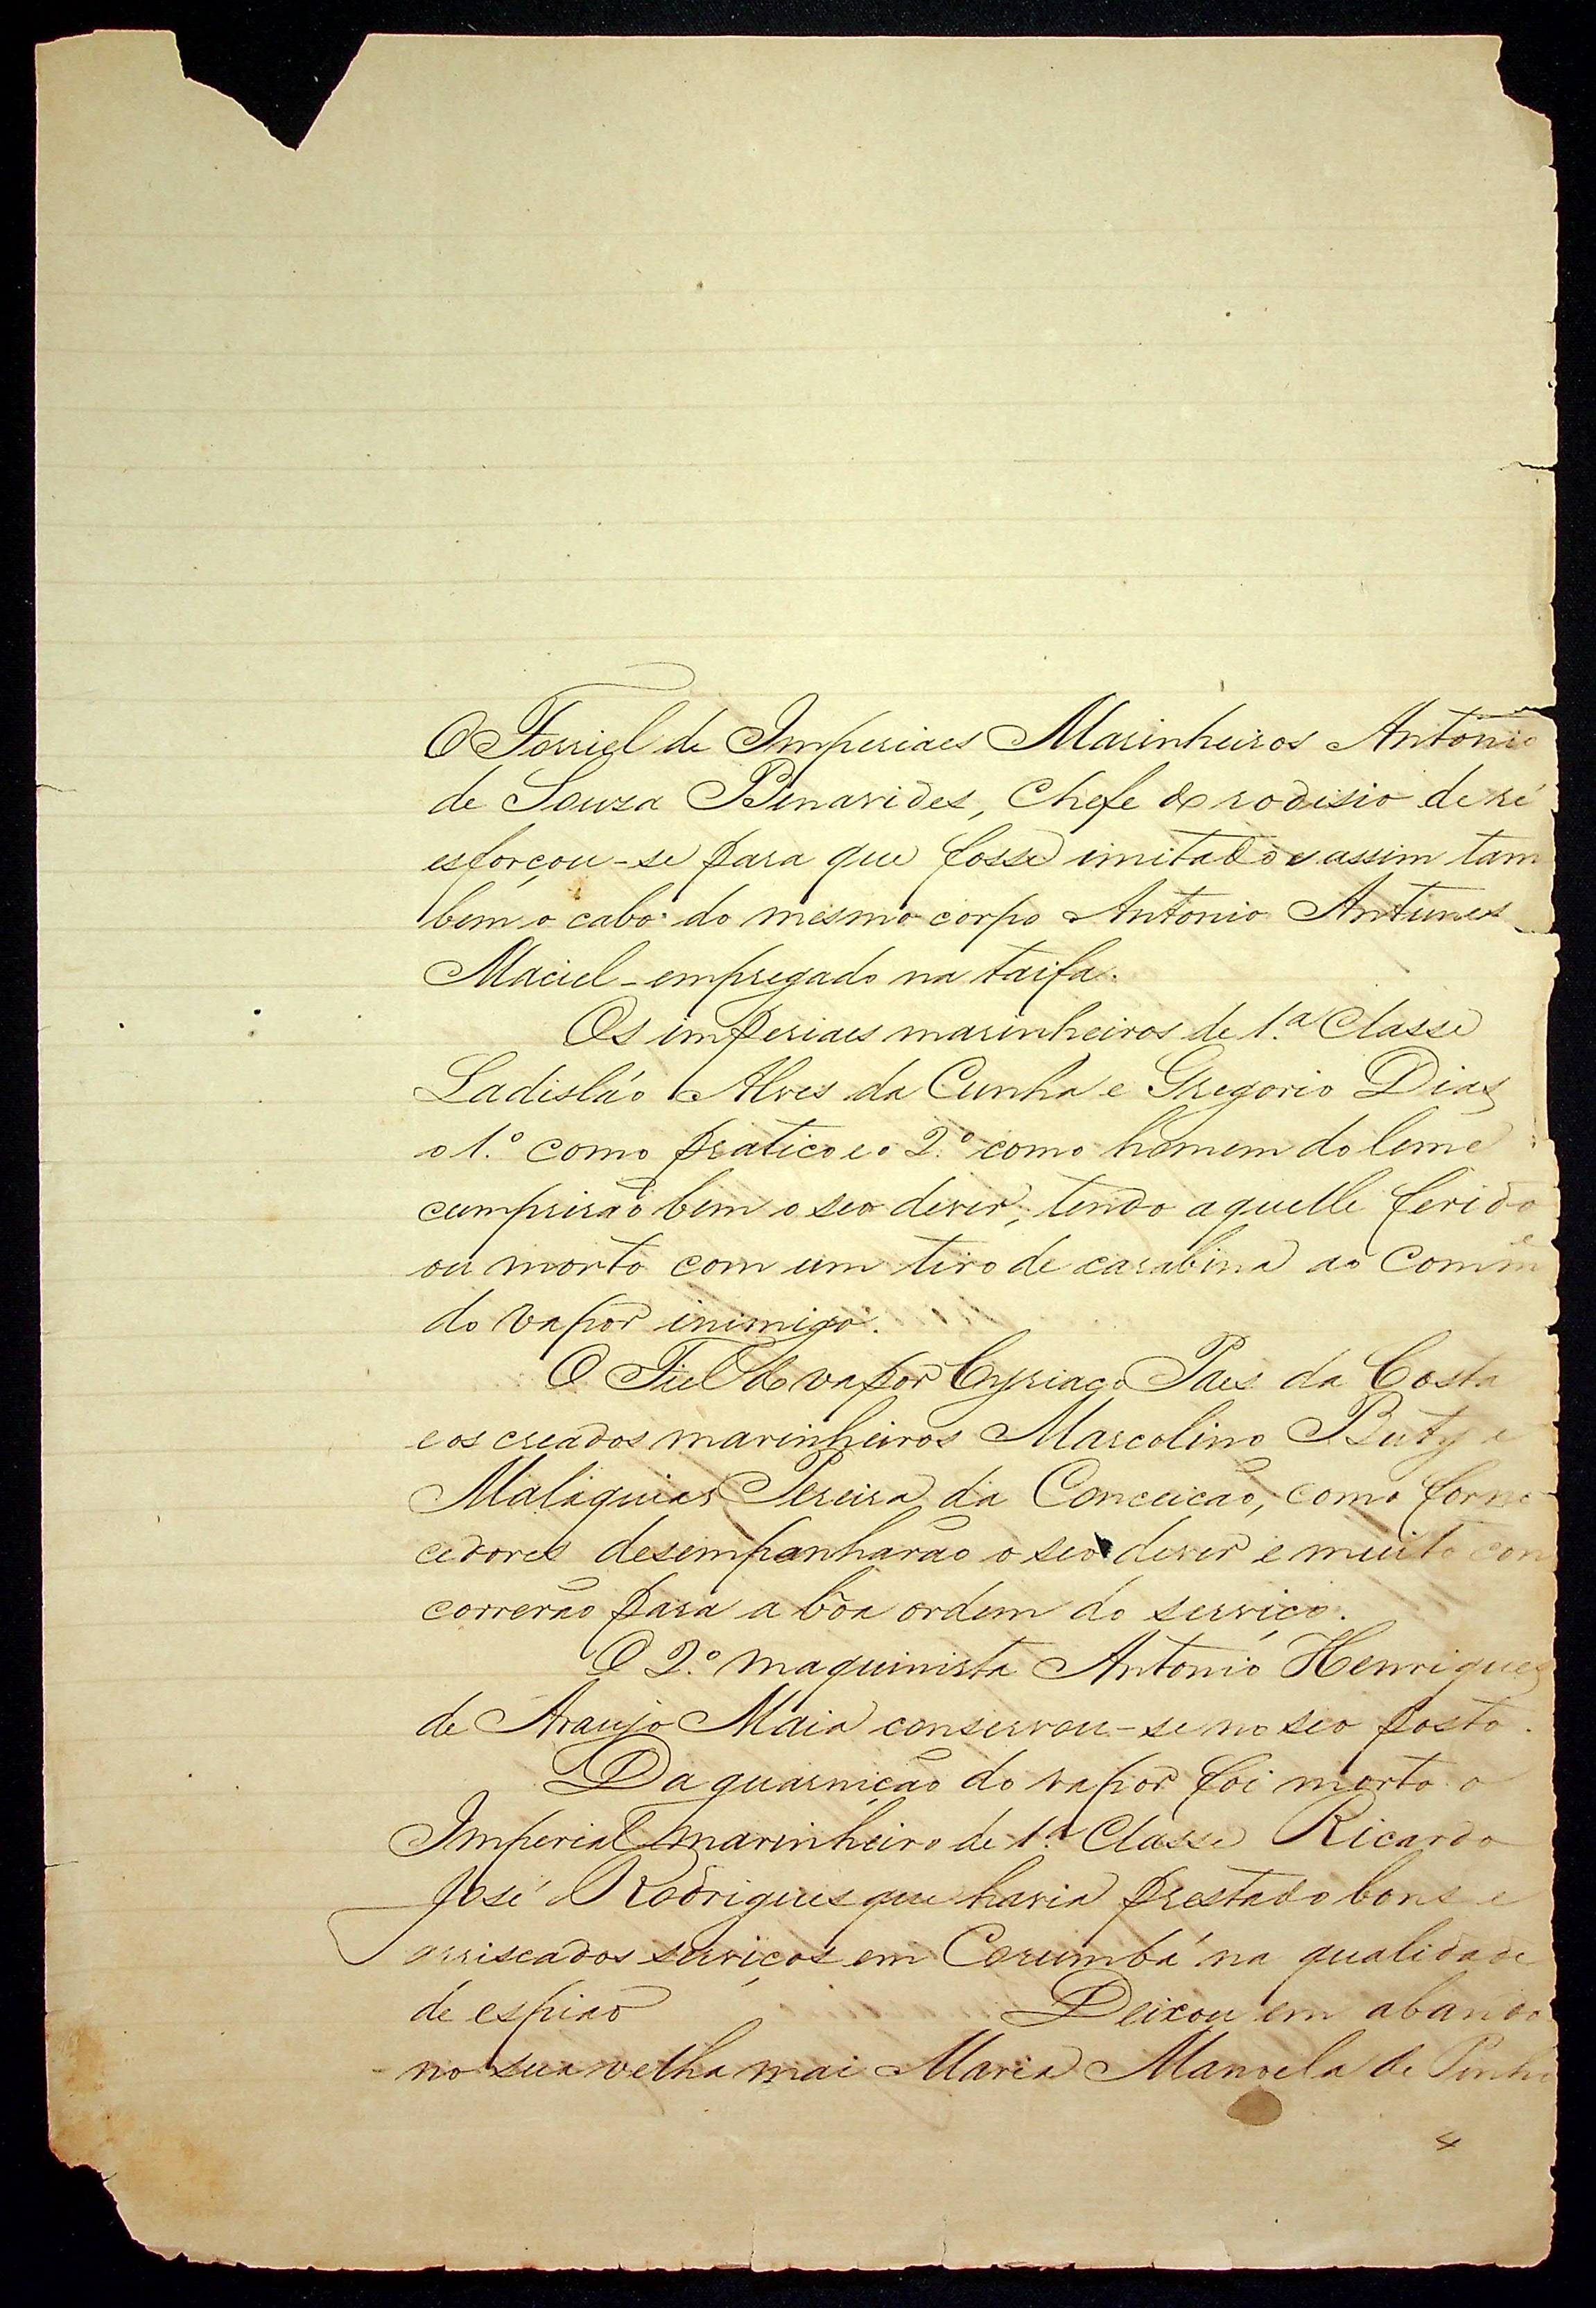 O Forriel de Imperiaes Marinheiros Antonio
de Souza Benavides, Chefe do rodisio de ré
esforçou-se para que fosse imitado e assim tam
bem o cabo do mesmo corpo Antonio Antunes
Maciel - empregado na taifa.
Os imperiaes marinheiros de 1.ª Classe
Ladisláo Alves da Cunha e Gregorio Dias
o 1.º como pratico e o 2.º como homem do leme
cumprirão bem o seo dever, tendo aquelle ferido
ou morto com um tiro de carabina ao Comm.e
do vapor inimigo.
O Fiel do vapor Cyriaco Paes da Costa
e os creados marinheiros Marcolino Buty e
Malaquias Pereira da Conceicão, como forne
cedores desempanharão o seo dever e muito con
correrão para a bôa ordem do serviço.
O 2.º maquinista Antonio Henriques
de Araujo Maia conservou-se no seo posto.
Da guarnição do vapor foi morto o
Imperial marinheiro de 1.ª Classe Ricardo
José Rodrigues que havia prestado bons e
arriscados serviços em Corumbá na qualidade
de espião Deixou em abando
no sua velha mai Maria Manoela de Pinho
4